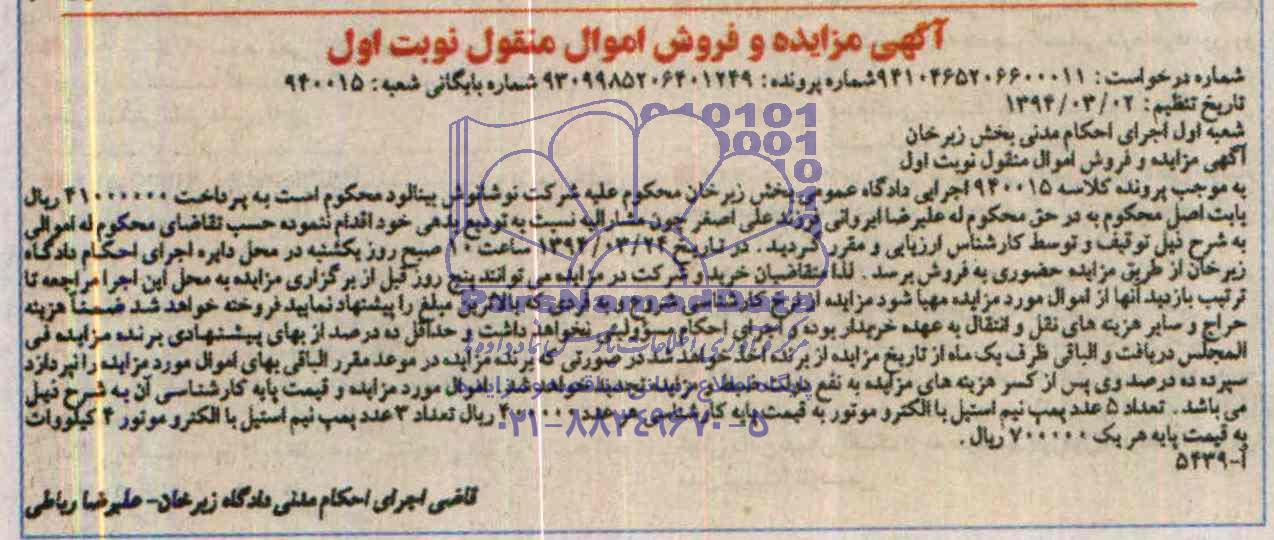 آگهی مزایده و فروش اموال منقول نوبت اول
شماره درخواست: ۹۴۱۰۴۶۵۲۰۶۶۰۰۰۱۱ شماره پرونده: ۹۳۰۹۹۸۵۲۰۶۴۰۱۲۴۹ شماره بایگانی شعبه: ۹۴۰۰۱۵
تاریخ تنظیم: ۱۳۹۴/۰۳/۰۲
شعبه اول اجرای احکام مدنی بخش زبرخان
آگهی مزایده و فروش اموال منقول نوبت اول
به موجب پرونده کلاسه ۹۴۰۰۱۵ اجرایی دادگاه عمومی بخش زبرخان محکوم علیه شرکت نوشانوش بینالود محکوم است به پرداخت ۴۱۰۰۰۰۰۰ ریال
بابت اصل محکوم به در حق محکوم له علیرضا ایروانی فرزند علی اصغر چون مشارالیه نسبت به تودیع بدهی خود اقدام ننموده حسب تقاضای محکوم له اموالی
به شرح ذیل توقیف و توسط کارشناس ارزیابی و مقرر گردید. در تاریخ ۱۳۹۴/۰۳/۲۴ ساعت ۱۰ صبح روز یکشنبه در محل دایره اجرای احکام دادگاه
زبرخان از طریق مزایده حضوری به فروش برسد. لذا متقاضیان خرید و شرکت در مزایده می توانند پنج روز قبل از برگزاری مزایده به محل این اجرا مراجعه تا
ترتیب بازدید آنها از اموال مورد مزایده مهیا شود مزایده از نرخ کارشناسی شروع و به فردی که بالاترین مبلغ را پیشنهاد نمایید فروخته خواهد شد ضمناً هزینه
حراج و سایر هزینه های نقل و انتقال به عهده خریدار بوده و اجرای احکام مسؤولیتی نخواهد داشت و حداقل ده درصد از بهای پیشنهادی برنده مزایده فی
المجلس دریافت و الباقی ظرف یک ماه از تاریخ مزایده از برنده اخذ خواهد شد در صورتی که برنده مزایده در موعد مقرر الباقی بهای اموال مورد مزایده را نپردازد
سپرده ده درصد وی پس از کسر هزینه های مزایده به نفع دولت ضبط و مزایده تجدید خواهد شد. اموال مورد مزایده و قیمت پایه کارشناسی آن به شرح ذیل
می باشد. تعداد ۵ عدد پمپ نیم استیل با الکترو موتور به قیمت پایه کارشناسی هر عدد ریال تعداد ۳ عدد پمپ نیم استیل با الکترو موتور ۴ کیلووات
به قیمت پایه هر یک ۷۰۰۰۰۰۰ ریال.
آ-۵۴۳۹
قاضی اجرای احکام مدنی دادگاه زبرخان- علیرضا رباطی
ParsNamadData
۰۲۱-۸۸۳۴۹۶۷۰-۵